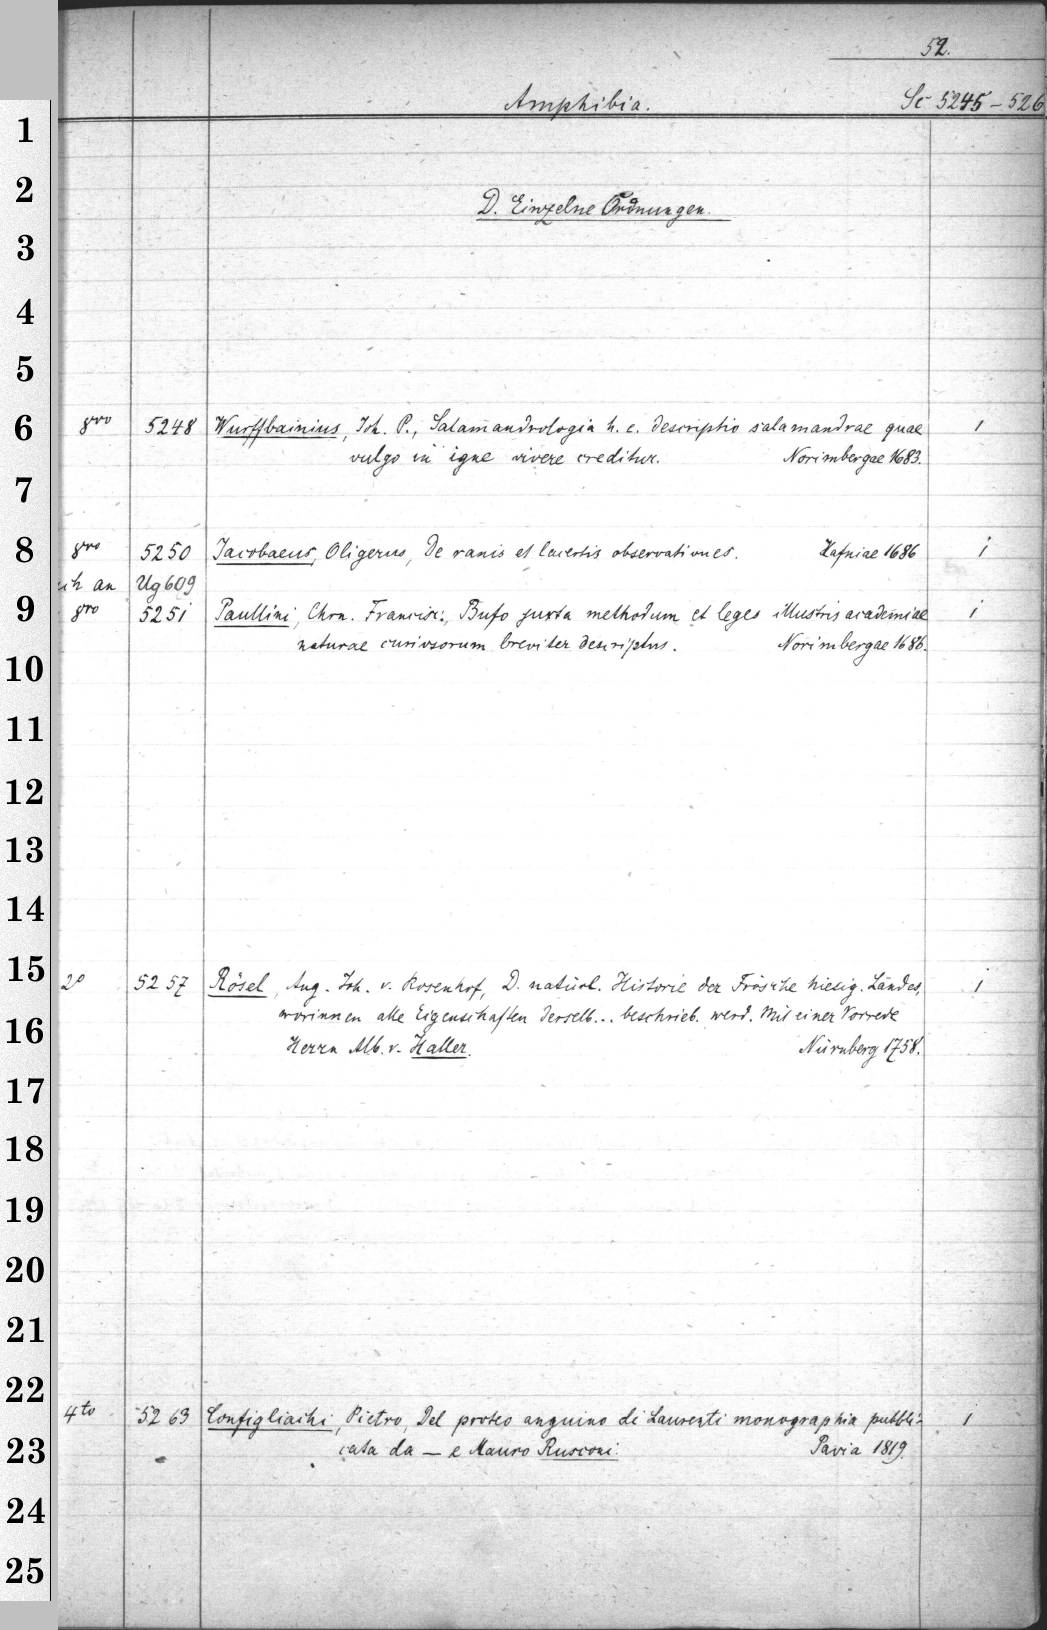 52.
Amphibia. Sc 5245-526
D. Einzelne Ordnungen.
8vo 5248 Wurffbainius, Joh. P., Salamandrologia h. e. descriptio salamandrae quae 1
vulgo in igne vivere creditur. Norimbergae 1683.
8vo 5250 Jacobaeus, Oligerus, De ranis et lacertis observationes. Hafniae 1686 1
an Ug 609
8vo 5251 Paullini, Chrn. Francisc:, Bufo juxta methodum et leges illustris academiae 1
naturae curiosorum breviter descriptus. Norimbergae 1686.
2o 5257 Rösel, Aug. Joh. v. Rosenhof, D. natürl. Historie der Frösche hiesig. Landes, 1
worinnen alle Eigenschaften derselb... beschrieb. werd. Mit einer Vorrede
Herrn Alb. v. Haller. Nürnberg 1758.
4to 5263 Configliachi, Pietro, Del proteo anguino di Laurenti monographia pubbli- 1
cata da — e Mauro Rusconi. Pavia 1819.
1
2
3
4
5
6
7
8
9
10
11
12
13
14
15
16
17
18
19
20
21
22
23
24
25